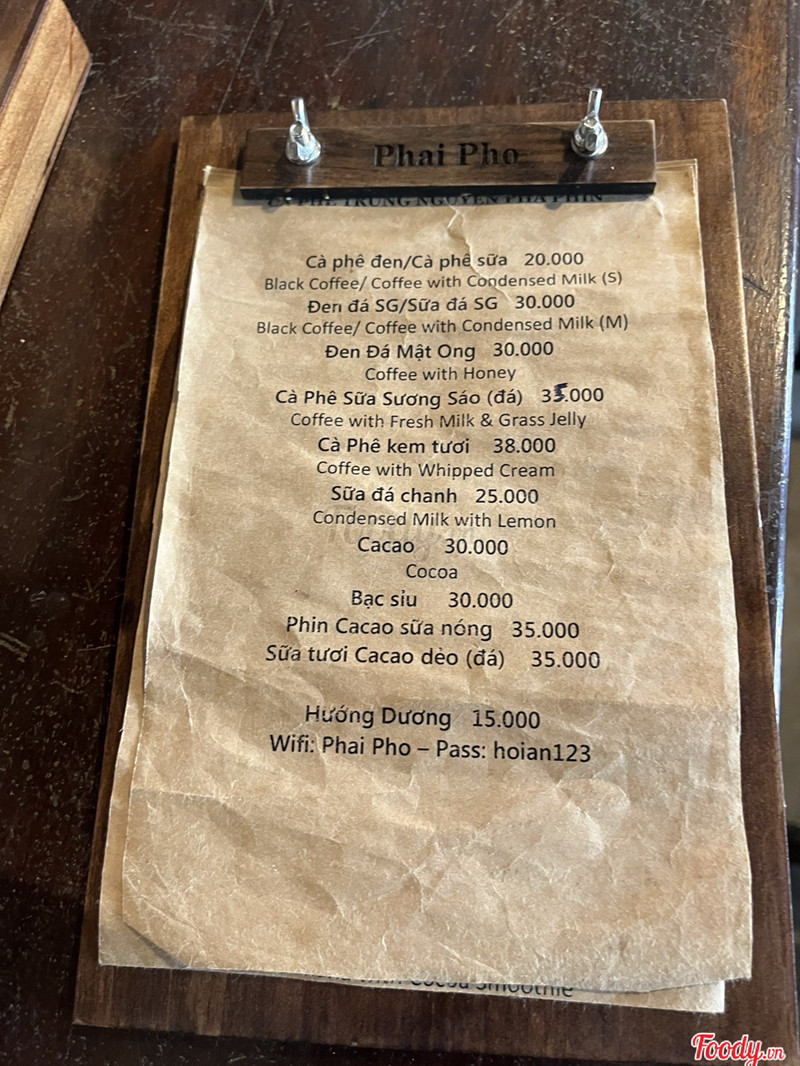 Phai Pho
CÀ PHÊ TRUNG NGUYÊN PHA PHIN
Cà phê đen/Cà phê sữa 20.000
Black Coffee/ Coffee with Condensed Milk (S)
Đen đá SG/Sữa đá SG 30.000
Black Coffee/ Coffee with Condensed Milk (M)
Đen Đá Mật Ong 30.000
Coffee with Honey
Cà Phê Sữa Sương Sáo (đá) 35.000
Coffee with Fresh Milk & Grass Jelly
Cà Phê kem tươi 38.000
Coffee with Whipped Cream
Sữa đá chanh 25.000
Condensed Milk with Lemon
Cacao 30.000
Cocoa
Bạc sỉu 30.000
Phin Cacao sữa nóng 35.000
Sữa tươi Cacao dẻo (đá) 35.000
Hướng Dương 15.000
Wifi: Phai Pho – Pass: hoian123
with Cocoa Smoothie
Foody.vn